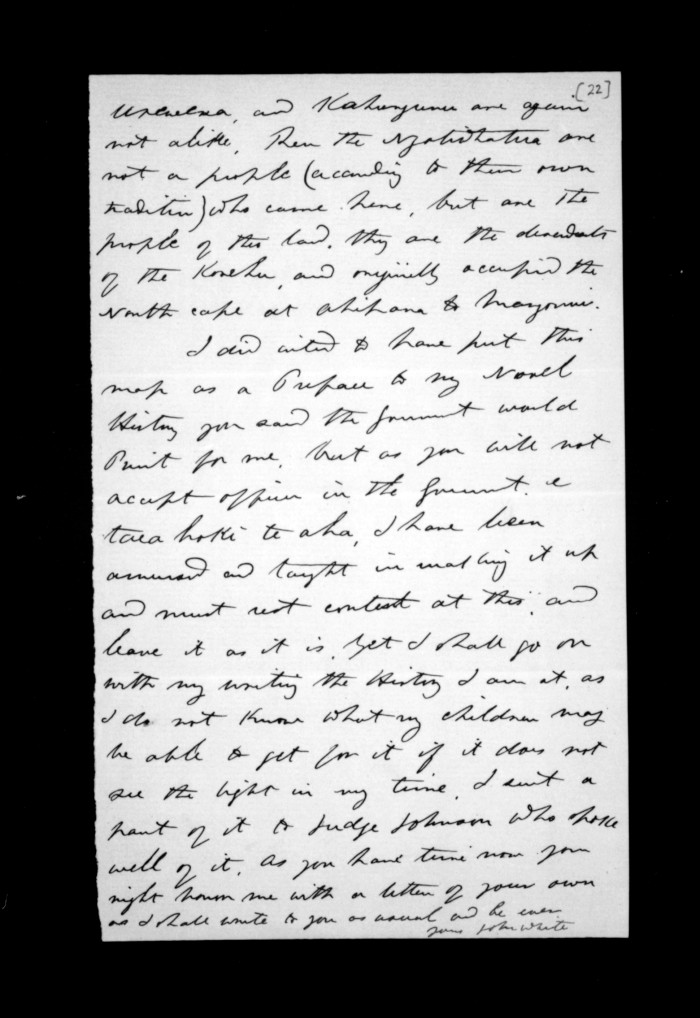 [22]
Urewera, and Kahungunu are again
not alike, Then the Ngatiwhatua are
not a people (according to their own
tradition) who came here, but are the
people of this land. they are the descendants
of the Korehu, and originally occupied the
North cape at Ahipara to Mangonui.
I did intend to have put this
map as a Preface to my Novel
History you said the Government would
Print for me, but as you will not
accept office in the Government. e
taea hoki te aha, I have been
amused and taught in making it up
and must rest content at this, and
leave it as it is, yet I shall go on
with my writing the History I am at, as
I do not know what my children may
be able to get for it if it does not
see the light in my time, I sent a
part of it to Judge Johnson who spoke
well of it, As you have time now you
might honor me with a letter of your own
as I shall write to you as usual and be ever
yours John White